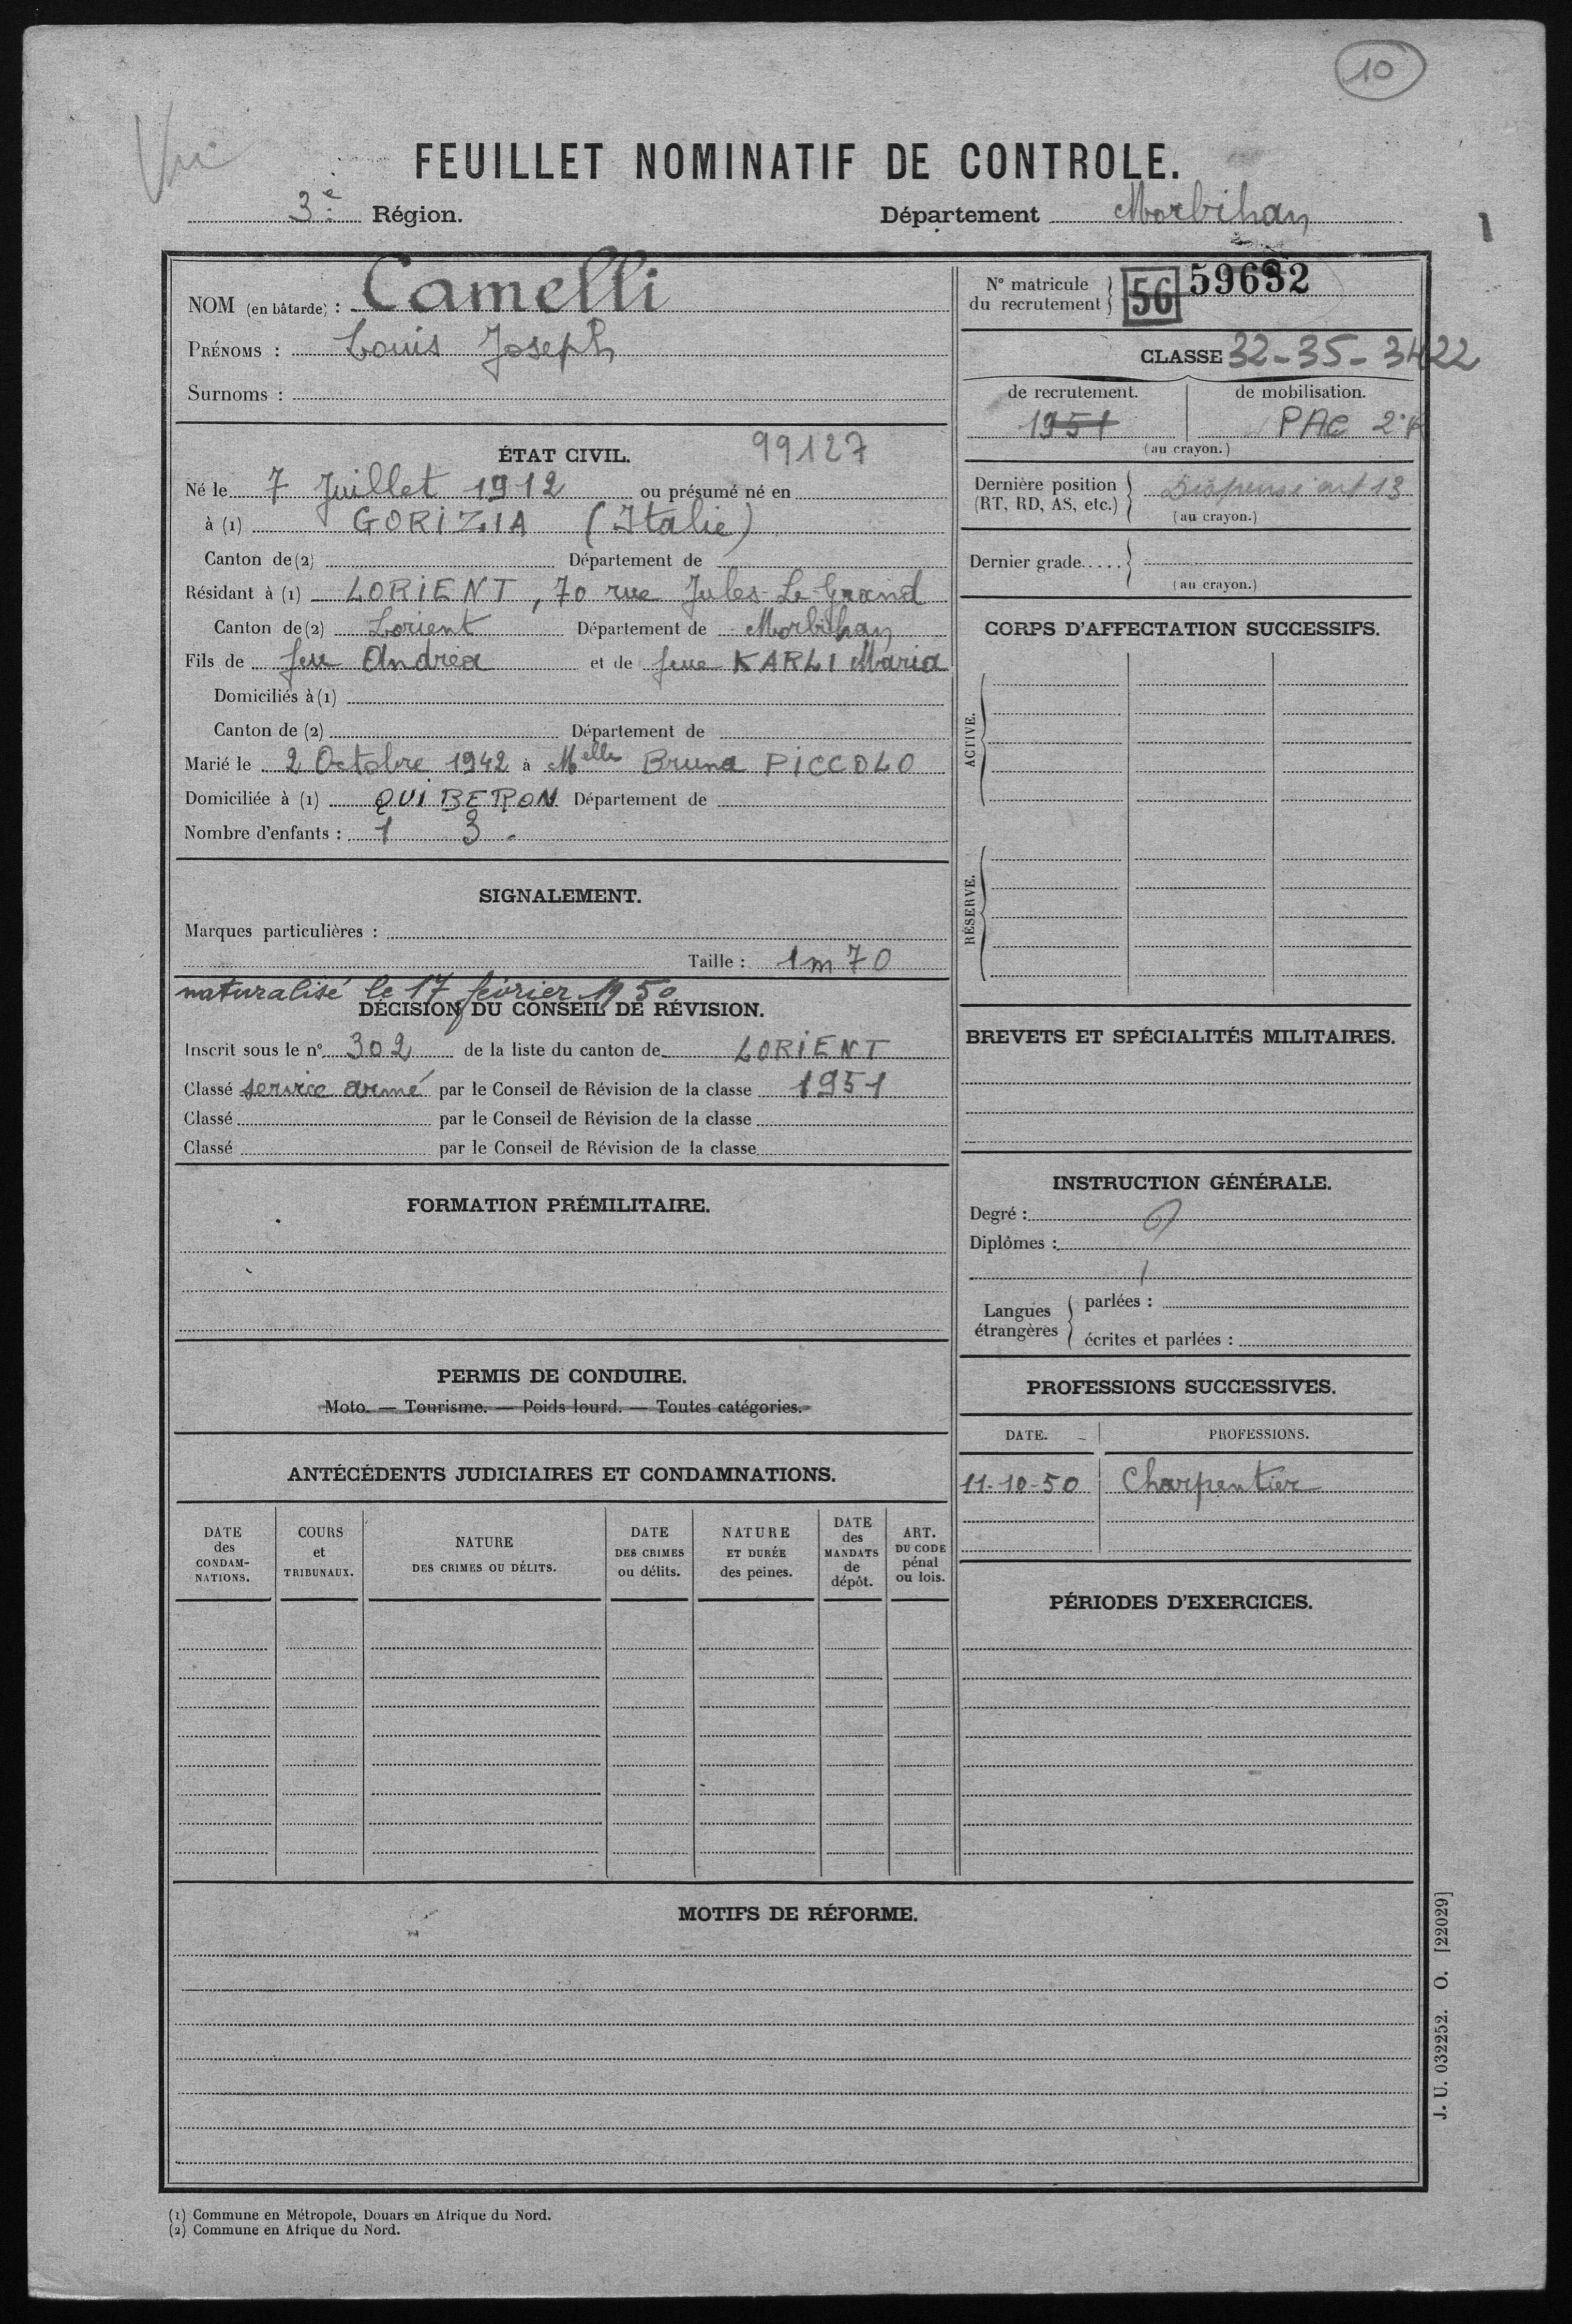 10
Vu
FEUILLET NOMINATIF DE CONTROLE.
3e Région.
Département Morbihan
NOM (en bâtarde) : Camelli
PRÉNOMS : Louis Joseph
Surnoms :
ÉTAT CIVIL. 99127
Né le 7 Juillet 1912 ou présumé né en
à (1) GORIZIA (Italie)
Canton de (2) Département de
Résidant à (1) LORIENT, 70 rue Jules-Le-Grand
Canton de (2) Lorient Département de Morbihan
Fils de feu Andréa et de feue KARLI Maria
Domiciliés à (1)
Canton de (2) Département de
Marié le 2 Octobre 1942 à Melle Bruna PICCOLO
Domiciliée à (1) QUIBERON Département de
Nombre d'enfants : 1 3
SIGNALEMENT.
Marques particulières :
Taille : 1m70
naturalisé le 17 février 1950
DÉCISION DU CONSEIL DE RÉVISION.
Inscrit sous le n° 302 de la liste du canton de LORIENT
Classé service armé par le Conseil de Révision de la classe 1951
Classé par le Conseil de Révision de la classe
Classé par le Conseil de Révision de la classe
FORMATION PRÉMILITAIRE.
PERMIS DE CONDUIRE.
Moto. — Tourisme. — Poids lourd. — Toutes catégories.
ANTÉCÉDENTS JUDICIAIRES ET CONDAMNATIONS.
DATE des CONDAMNATIONS.
COURS et TRIBUNAUX.
NATURE DES CRIMES OU DÉLITS.
DATE DES CRIMES ou délits.
NATURE ET DURÉE des peines.
DATE des MANDATS de dépôt.
ART. DU CODE pénal ou lois.
N° matricule du recrutement 56 59632
CLASSE 32-35-3422
de recrutement. de mobilisation.
1951 PAC 2°
(au crayon.)
Dernière position (RT, RD, AS, etc.) Dispensé art 13
(au crayon.)
Dernier grade.....
(au crayon.)
CORPS D'AFFECTATION SUCCESSIFS.
ACTIVE.
RÉSERVE.
BREVETS ET SPÉCIALITÉS MILITAIRES.
INSTRUCTION GÉNÉRALE.
Degré :
Diplômes :
Langues étrangères
parlées :
écrites et parlées :
PROFESSIONS SUCCESSIVES.
DATE. PROFESSIONS.
11-10-50 Charpentier
PÉRIODES D'EXERCICES.
MOTIFS DE RÉFORME.
J. U. 032252. O. [22029]
(1) Commune en Métropole, Douars en Afrique du Nord.
(2) Commune en Afrique du Nord.